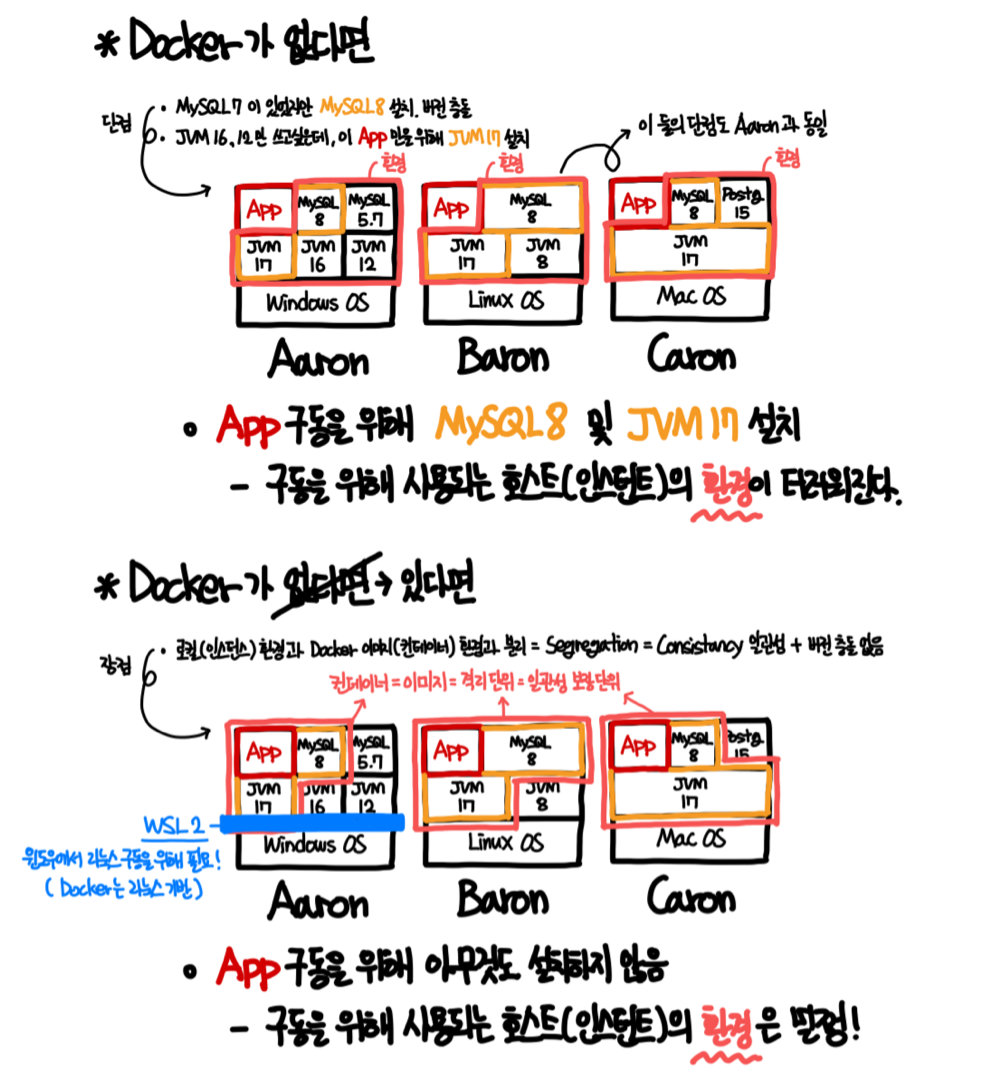 * Docker가 없다면
단점
· MySQL7 이 있었지만 MySQL8 설치. 버전 충돌
· JVM 16, 12만 쓰고싶은데, 이 App 만을 위해 JVM 17 설치
이 둘의 단점도 Aaron과 동일
환경 환경 환경
App MySQL 8 MySQL 5.7
JVM 17 JVM 16 JVM 12
Windows OS
Aaron
App MySQL 8
JVM 17 JVM 8
Linux OS
Baron
App MySQL 8 Postg 15
JVM 17
Mac OS
Caron
• App 구동을 위해 MySQL8 및 JVM 17 설치
- 구동을 위해 사용되는 호스트(인스턴트)의 환경이 더러워진다.
* Docker가 없다면 → 있다면
장점
· 로컬(인스턴스) 환경과 Docker 이미지(컨테이너) 환경과 분리 = Segregation = Consistancy 일관성 + 버전 충돌 없음
컨테이너=이미지=격리단위=일관성 보장단위
App MySQL 8 MySQL 5.7
JVM 17 JVM 16 JVM 12
WSL 2
윈도우에서 리눅스 구동을 위해 필요!
( Docker는 리눅스 기반 )
Windows OS
Aaron
App MySQL 8
JVM 17 JVM 8
Linux OS
Baron
App MySQL 8 Postg 15
JVM 17
Mac OS
Caron
• App 구동을 위해 아무것도 설치하지 않음
- 구동을 위해 사용되는 호스트(인스턴트)의 환경은 멀쩡!